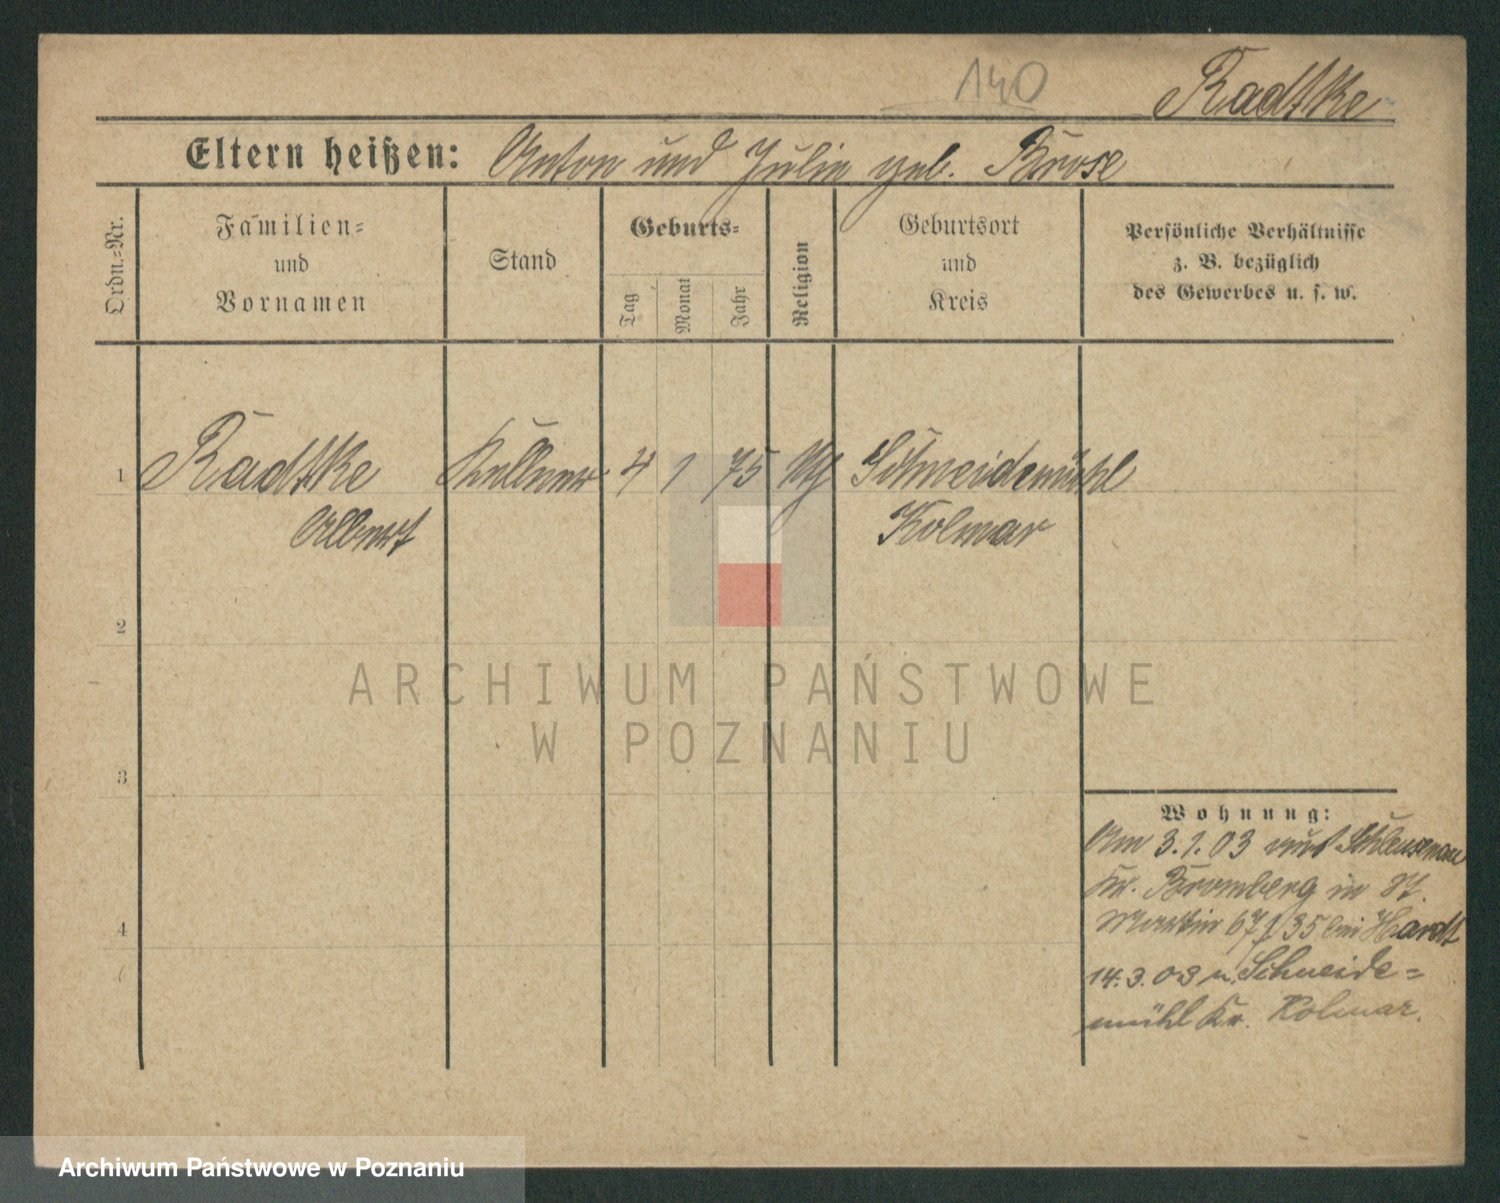 140
Radtke
Eltern heißen: Anton und Julie geb. Brose
Ordn.-Nr.
Familien-
und
Vornamen
Stand
Geburts-
Tag
Monat
Jahr
Religion
Geburtsort
und
Kreis
Persönliche Verhältnisse
z. B. bezüglich
des Gewerbes u. s. w.
1 Radtke Kellner 4 1 75 Schneidemühl
Albert Kolmar
2
3
4
ARCHIWUM PAŃSTWOWE
W POZNANIU
Wohnung:
Am 3.1.03 aus Schleusenau
Kr. Bromberg in St.
Martin 67 35 bei Hardt
14.3.03 n. Schneide-
mühl Kr. Kolmar.
Archiwum Państwowe w Poznaniu